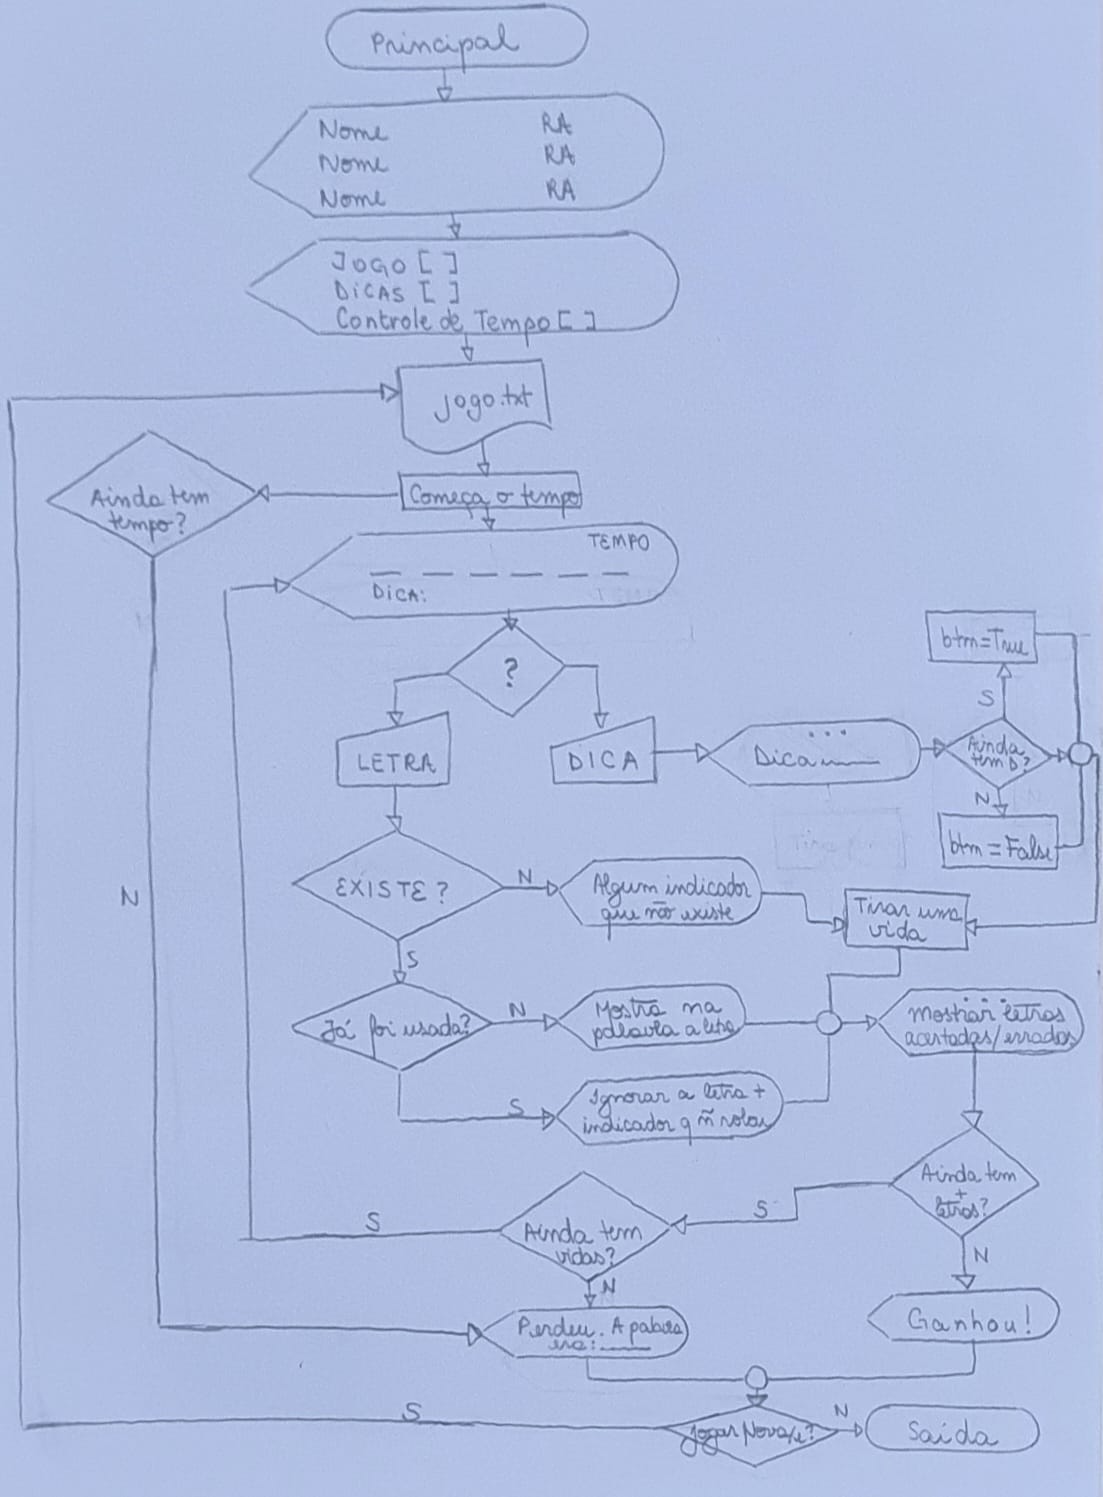 Principal
Nome RA
Nome RA
Nome RA
JOGO [ ]
DICAS [ ]
Controle de Tempo [ ]
jogo.txt
Começa o tempo
Ainda tem
tempo?
TEMPO
_ _ _ _ _ _
DICA:
?
LETRA
DICA
...
Dica____
btm=True
S
Ainda
tem D?
N
btm=False
EXISTE?
N
Algum indicador
que não existe
Tirar uma
vida
S
Já foi usada?
N
Mostra na
palavra a letra
mostrar letras
acertadas/erradas
S
Ignorar a letra +
indicador q ñ rolou
N
Ainda tem
+
letras?
S
Ainda tem
vidas?
S
N
N
Perdeu. A palavra
era:____
Ganhou!
Jogar Nova/e?
S
N
Saída